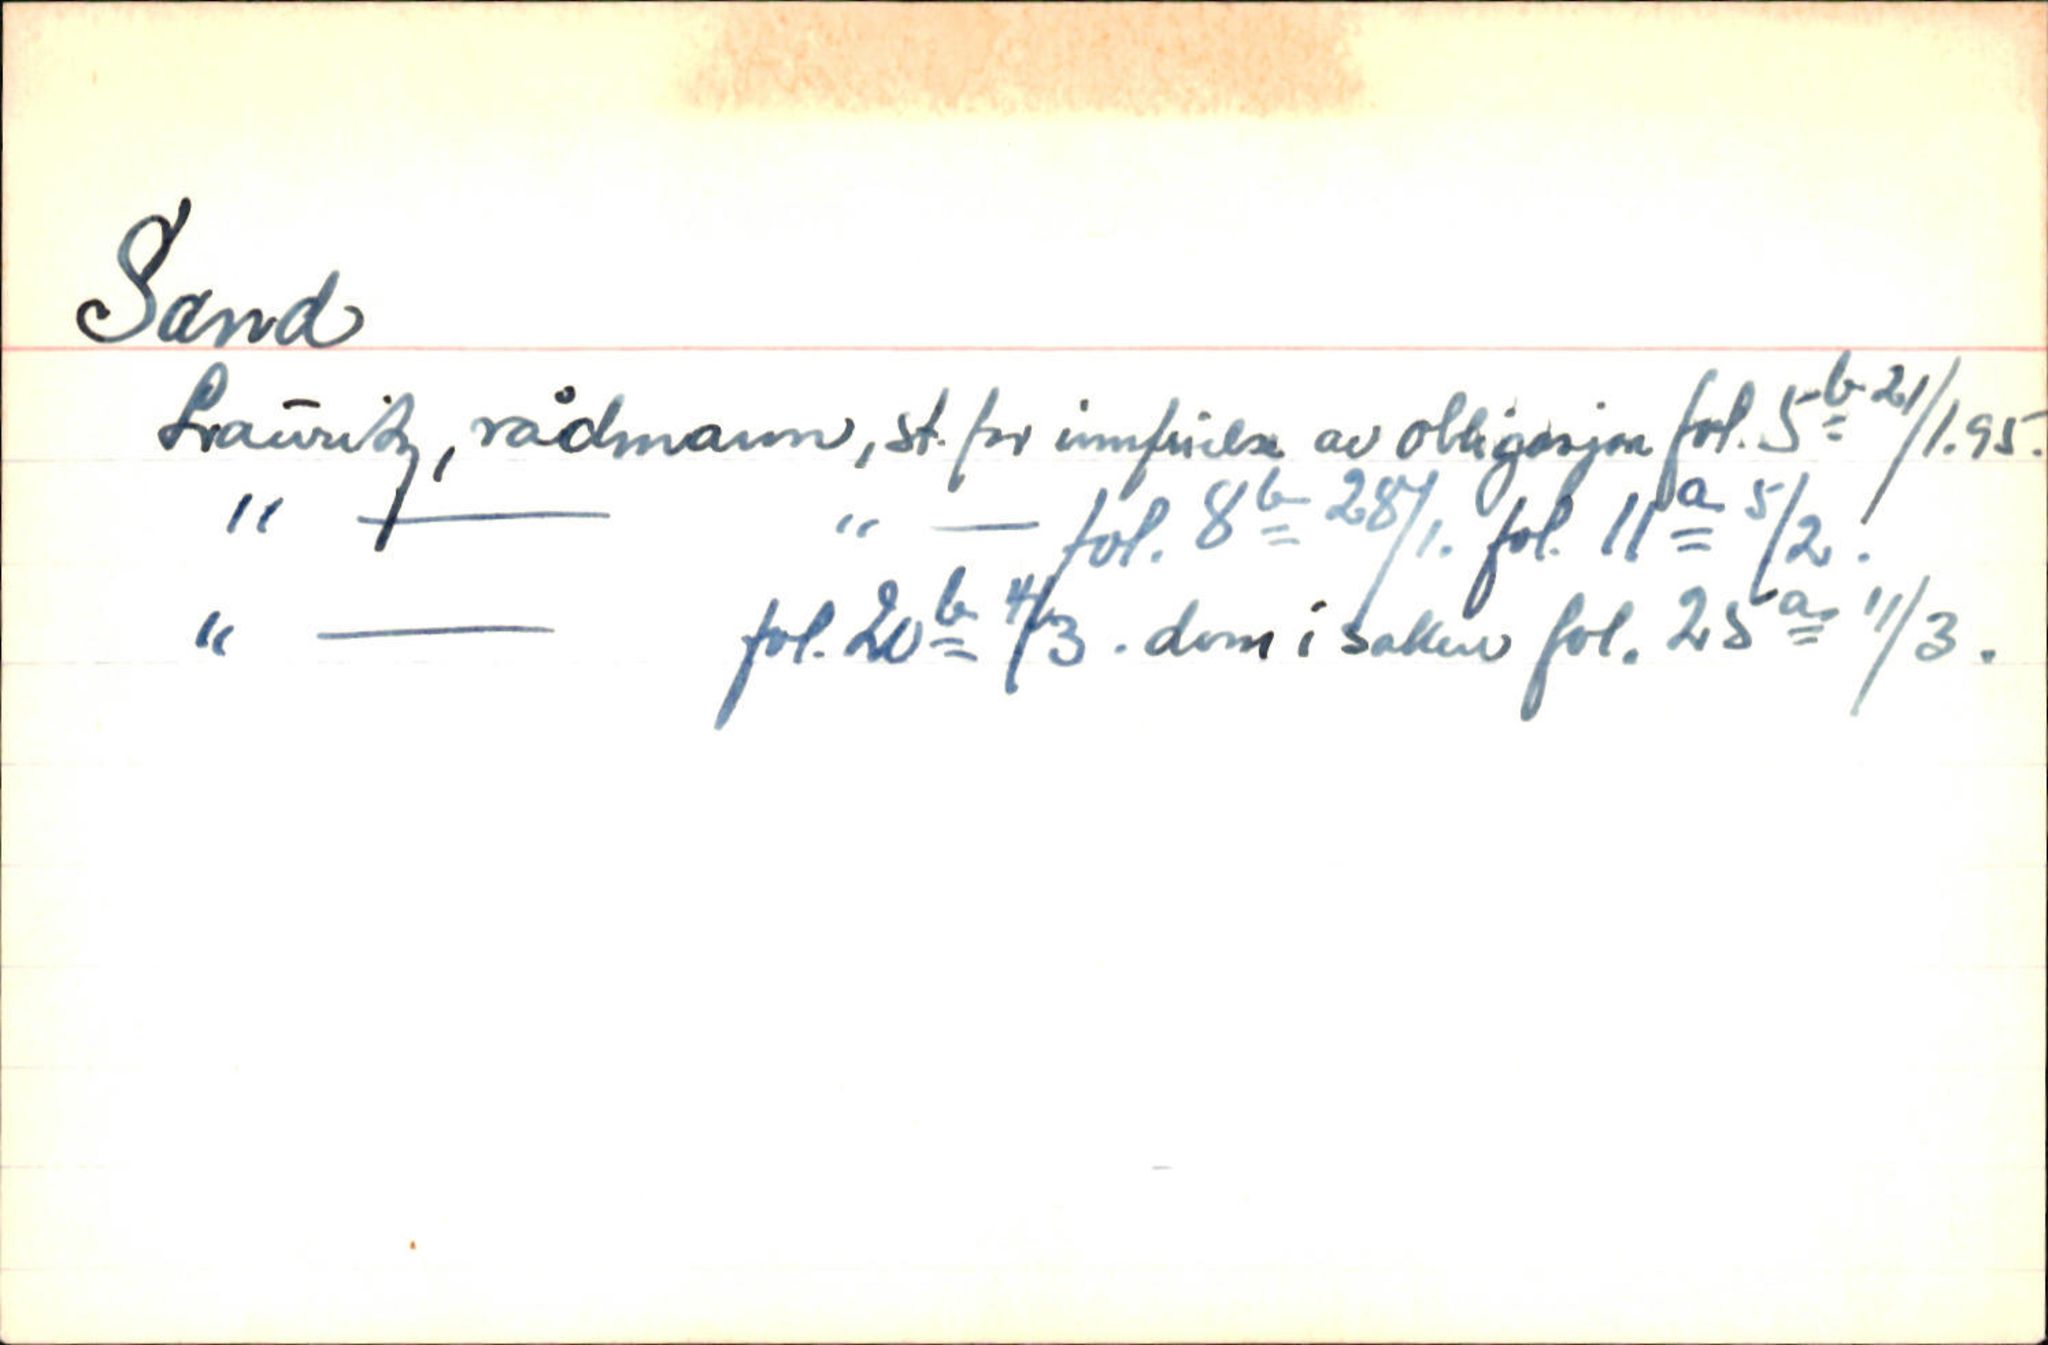 Sand
Lauritz, rådmann, st. for innfrielse av obligasjon fol. 5b 21/1.95.
" — " — fol. 8b 28/1. fol. 11a 5/2.
" — fol. 20b 4/3. dom i saken fol. 25a 11/3.